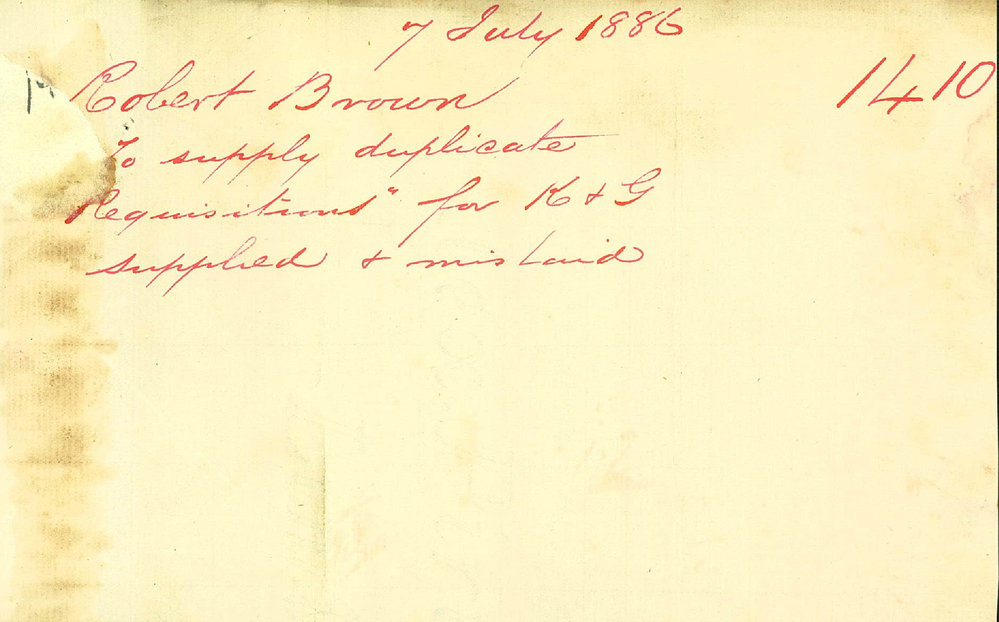 7 July 1886
Robert Brown 1410
To supply duplicate
Requisitions" for K & G
supplied & mislaid